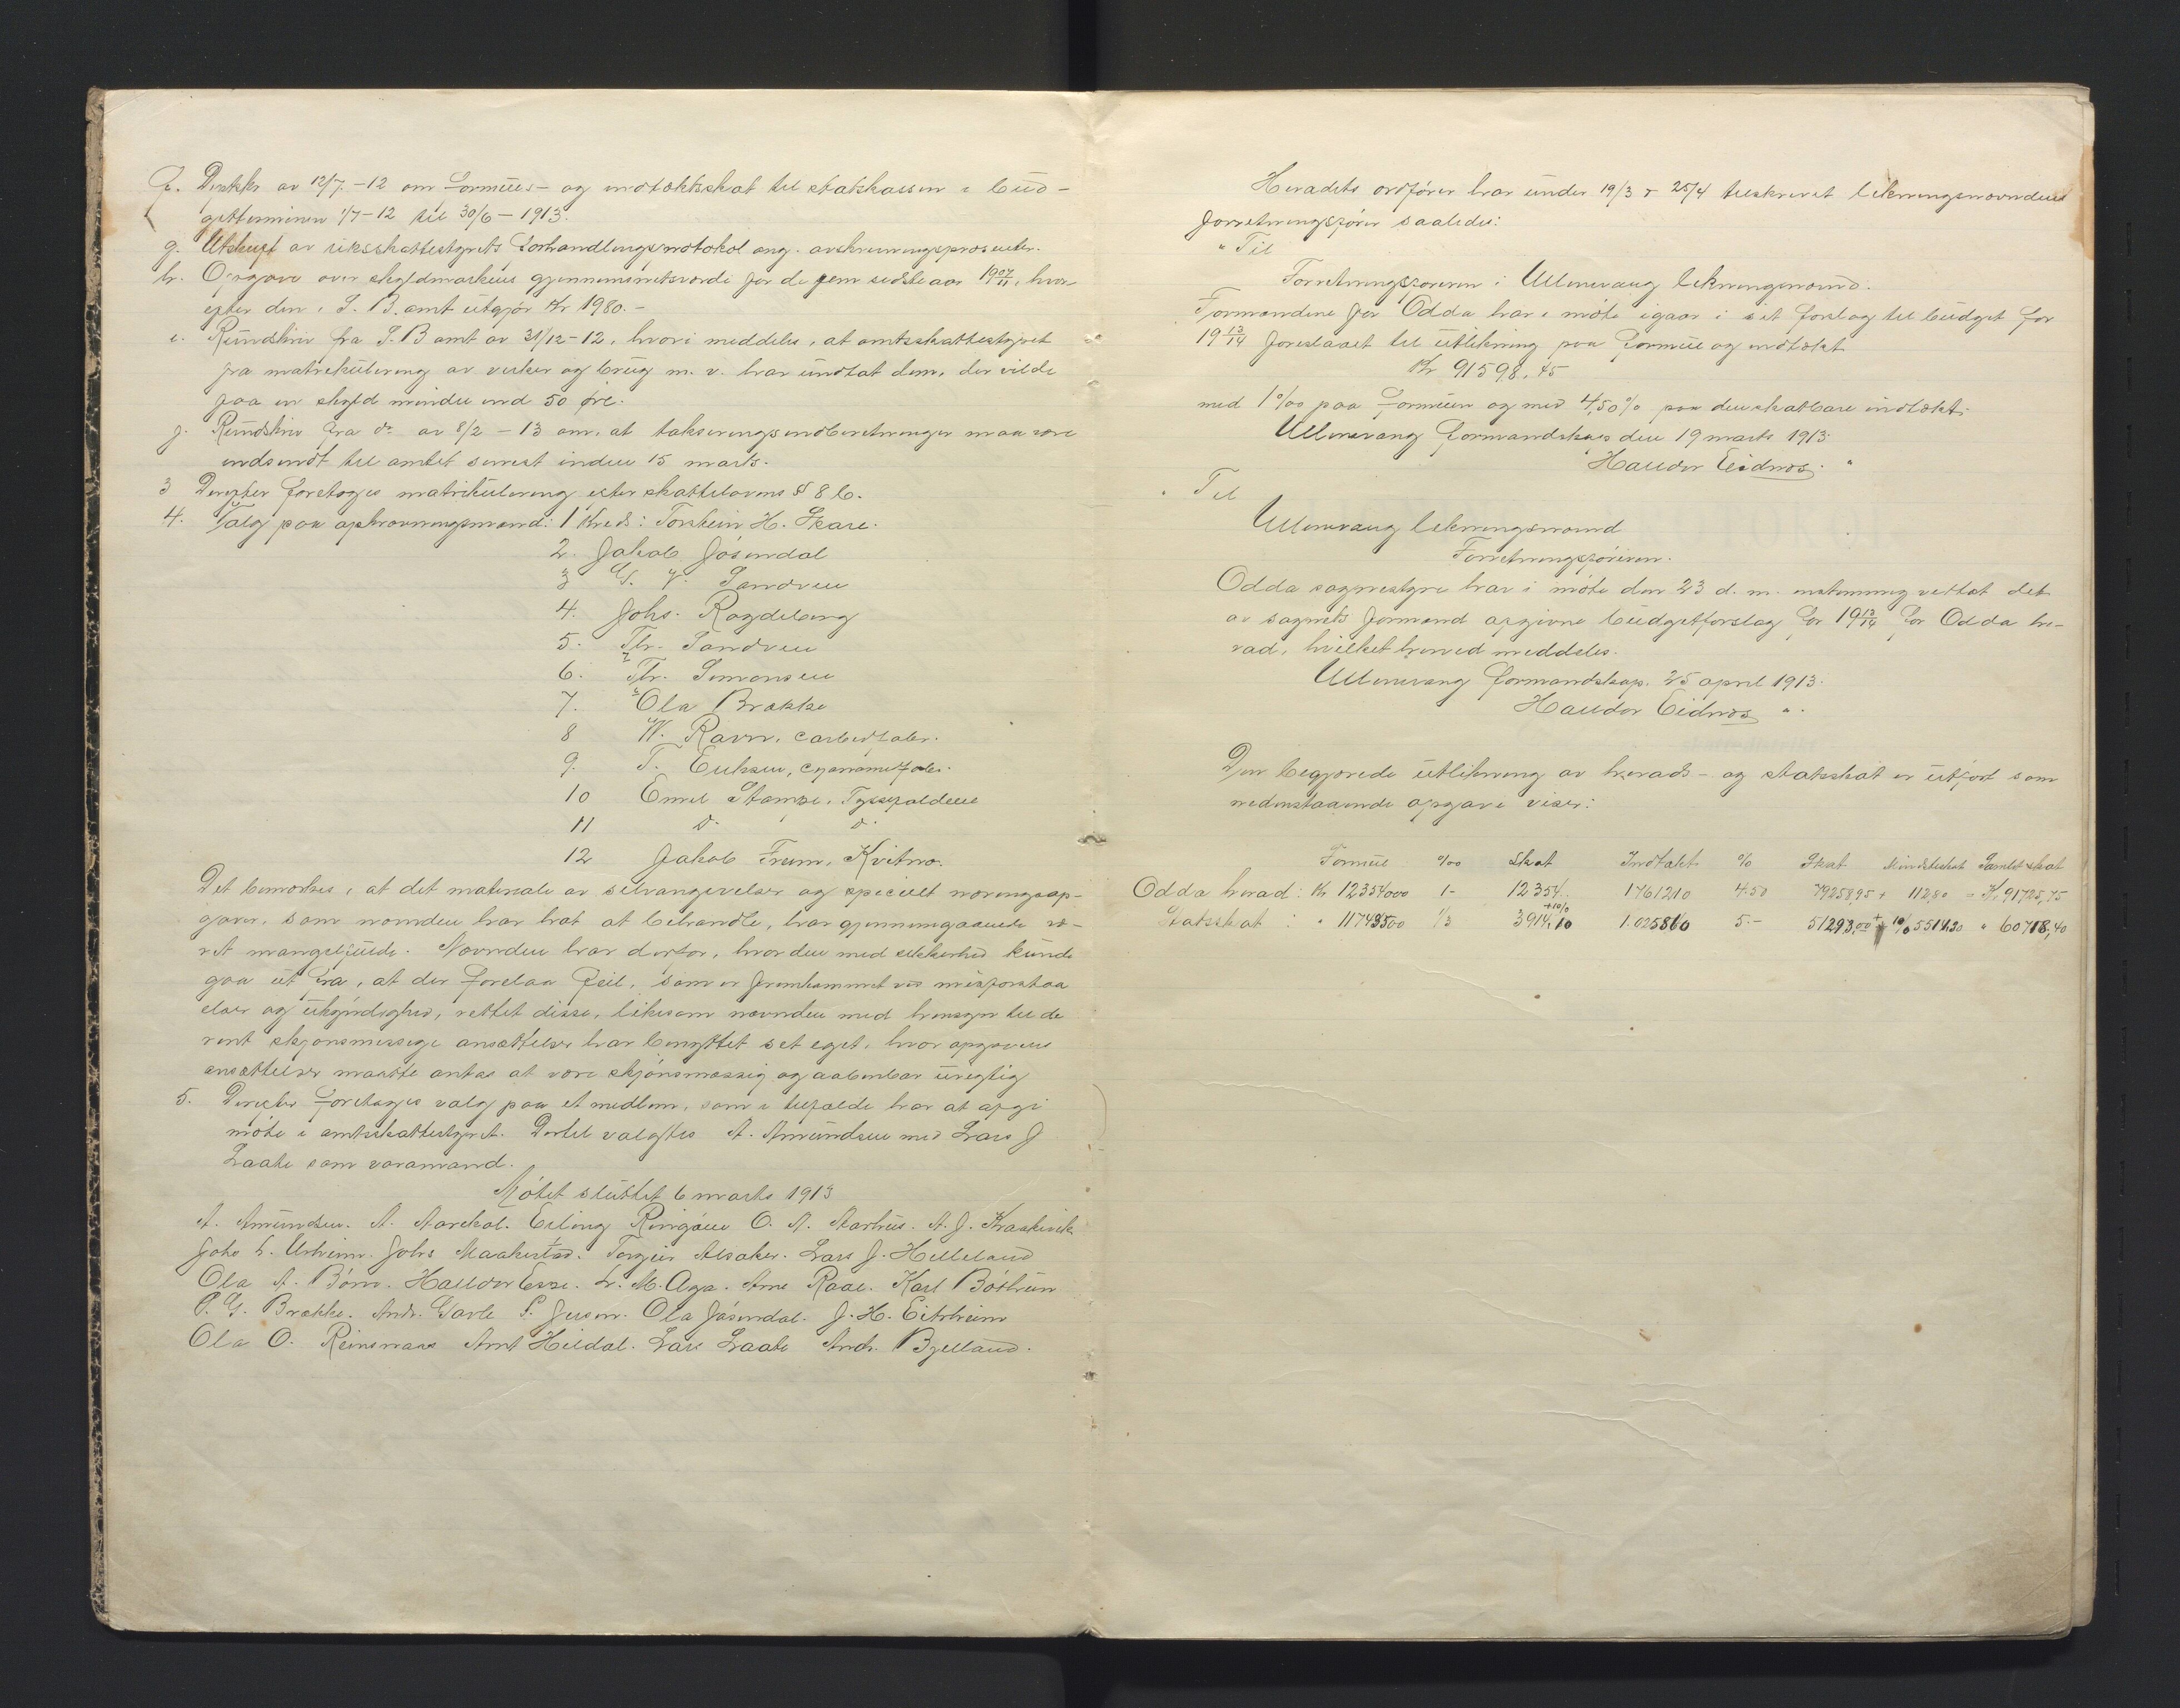 f. Direkts av 12/7.-12 om Formues- og indtektsskat til statskassen i bud-
getterminen 1/7-12 til 30/6-1913.
g. Utskrift av riksskattestyrets forhandlingsprotokol ang. avskrivningsprosenter.
h. Opgave over skyldmarkens gjennemsnitsværdi for de fem sidste aar 1907/11, hvor-
efter den i S. B. amt utgjør Kr 1980.-
i. Rundskriv fra S. B amt av 31/12-12, hvori meddeles, at amtsskattestyret
fra matrikulering av verker og brug m. v. har undtat dem, der vilde
faa en skyld mindre end 50 øre.
j. Rundskriv fra do av 8/2-13 om, at takseringsindberetninger maa være
indsendt til amtet senest inden 15 marts.
3 Derefter foretoges matrikulering efter skattelovens § 8 b.
4. Valg paa opkrævningsmænd: 1 Kreds: Torstein H. Skare.
2. Jakob Jøsendal
3 G. V. Sandven
4. Johs. Ragdeberg
5. Thr. Sandven
6. Thr. Simonsen
7. Ola Brække
8 W. Ravn, carbidfabr.
9. T. Eriksen, cyanamidfabr.
10 Emil Stampe, Tyssefaldene
11 do. do.
12 Jakob Freim, Kvitno.
Det bemærkes, at det materiale av selvangivelser og specielt næringsop-
gaver, som nævnden har hat at behandle, har gjennemgaaende væ-
ret mangelfuldt. Nævnden har derfor, hvor den med sikkerhed kunde
gaa ut fra, at der forelaa feil, som er fremkommet ved misforstaa
elser og ukyndighed, rettet disse, likesom nævnden med hensyn til de
rent skjønsmessige ansættelser har benyttet set eget, hvor opgavens
ansættelser maatte antas at være skjønsmæssig og aabenbar uriktig
5. Derefter foretages valg paa et medlem, som i tilfælde har at avgi
møte i amtsskattestyret. Dertil valgtes A. Amundsen med Lars J
Laate som varamand.
Møtet sluttet 6 marts 1913
A. Amundsen. A. Aarekol. Erling Ringøen O. A. Aarhus. A. J. Kraakevik
Johs L. Urheim. Johs Maakestad. Torgeir Alsaker. Lars J. Helleland
Ola A. Børve. Halldor Espe. L. M. Aga. Arne Raae. Karl Bøthun
P. G. Brække. Andr. Garle P. Jusnes. Ola Jøsendal. J. H. Eitrheim
Ola O. Reinsnaas Arnt Hildal. Lars Laate Andr. Bjelland.
Heradets ordfører har under 19/3 & 25/4 tilskrevet likningsnævndens
forretningsfører saaledes:
" Til
Forretningsføreren i Ullensvang likningsnævnd.
Formændene for Odda har i møte igaar i sit forslag til budget for
1913/14 foreslaaet til utlikning paa formue og indtækt
Kr 91598.45
med 1 0/00 paa formuen og med 4,50% paa den skatbare indtækt.
Ullensvang formandskap den 19 marts 1913.
Halldor Eidnes. "
" Til
Ullensvang likningsnævnd
Forretningsføreren.
Odda sognestyre har i møte den 23 d. m. enstemmig vedtat det
av sognets formænd avgivne budgetforslag for 1913/14 for Odda he-
rad, hvilket herved meddeles.
Ullensvang formandskap. 25 april 1913.
Halldor Eidnes ".
Den begjærede utlikning av herads- og statsskat er utført som
nedenstaaende opgave viser:
Formue 0/00 Skat Indtækt % Skat Mindsteskat Samlet skat
Odda herad: Kr 12354000 1- 12354.- 1761210 4.50 79258,95 + 112,80 = Kr 91725,75
+10%
Statsskat : " 11743500 1/3 3914,10 1.025860 5.- 51293,00 + 10% 5519,30 " 60718,40